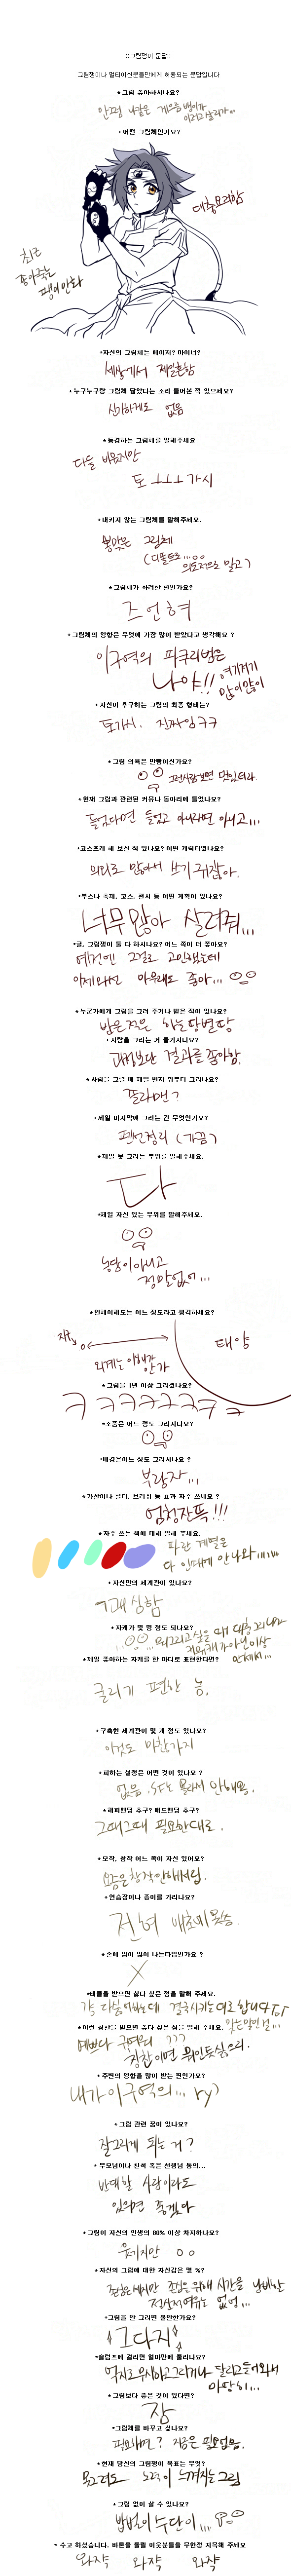 ::그림쟁이 문답::
그림쟁이나 멀티이신분들만에게 허용되는 문답입니다
*그림 좋아하시나요?
안정 나같은 게으름뱅이가
이러고살리가..
*어떤 그림체인가요?
대충요러함
최근
좋아죽는
팽이만화
*자신의 그림체는 메이저? 마이너?
세상에서 제일흔함
*누구누구랑 그림체 닮았다는 소리 들어본 적 있으세요?
신기하게도 없음
*동경하는 그림체를 말해주세요
다들 비웃지만
토ㅗㅗㅗ가시
*내키지 않는 그림체를 말해주세요.
뽕맞은 그림체
(디폴트로...
의도적으로 말고)
*그림체가 화려한 편인가요?
즈언혀
*그림체의 영향은 무엇에 가장 많이 받았다고 생각해요 ?
이구역의 파쿠리범은
나야!! 여기저기
많이많이
*자신이 추구하는 그림의 최종 형태는?
토가시. 진짜임ㅋㅋ
*그림 의욕은 만빵이신가요?
그런사람보면 멋있더라.
*현재 그림과 관련된 커뮤나 동아리에 들었나요?
들었다면 들었고 아니라면 아니고...
*코스프레 해 보신 적 있나요? 어떤 캐릭터였나요?
의외로 많아서 쓰기 귀찮아.
*부스나 축제, 코스, 팬시 등 어떤 계획이 있나요?
너무많아 살려줘...
*글, 그림쟁이 둘 다 하시나요? 어느 쪽이 더 좋아요?
예전엔 그걸로 고민했는데
이제와선 아무래도 좋아...
*누군가에게 그림을 그려 주거나 받은 적이 있나요?
받은적은 하늘땅별땅
*사람을 그리는 거 즐기시나요?
과정보다 결과를 좋아함.
*사람을 그릴 때 제일 먼저 뭐부터 그리나요?
쫄라맨?
*제일 마지막에 그려는 건 무엇인가요?
펜선정리 (가끔)
*제일 못 그리는 부위를 말해주세요.
다
*제일 자신 있는 부위를 말해주세요.
농담이아니고
정말없어...
*인체이해도는 어느 정도라고 생각하세요?
지구
태양
외계는 이해가
안가
*그림을 1년 이상 그리셨나요?
ㅋㅋㅋㅋㅋㅋㅋ
*소품은 어느 정도 그리시나요?
*배경은어느 정도 그리시나요 ?
부랑자...
*가산이나 필터, 브러쉬 등 효과 자주 쓰세요 ?
엄청잔뜩!!!
*자주 쓰는 색에 대해 말해 주세요.
파란 계열은
다 인데에 안나와....
*자신만의 세계관이 있나요?
*자캐가 몇 명 정도 되나요?
*제일 좋아하는 자캐를 한 마디로 표현한다면?
굴리기 편한 놈.
*구축한 세계관이 몇 개 정도 있나요?
이것도 마찬가지
*피하는 설정은 어떤 것이 있나요 ?
없음. SF는 몰라서 안해용.
*해피엔딩 추구? 배드엔딩 추구?
그때그때 필요한대로.
*모작, 창작 어느 쪽이 자신 있어요?
요즘은창작안해서림.
*연습장이나 종이를 가리나요?
전혀
*손에 땀이 많이 나는타입인가요 ?
X
*태클을 받으면 싫다 싶은 점을 말해 주세요.
*이런 칭찬을 받으면 좋다 싶은 점을 말해 주세요.
예쁘다 귀엽다 ???
칭찬이면 뭐인듯싫으리.
*주변의 영향을 많이 받는 편인가요?
내가이구역의... ry)
*그림 관련 꿈이 있나요?
잘그리게 되는거?
* 부모님이나 친척 혹은 선생님 동의...
반대할 사람이라도
있으면 좋겠다
*그림이 자신의 인생의 80% 이상 차지하나요?
웃기지만 ㅇㅇ
*자신의 그림에 대한 자신감은 몇 %?
*그림을 안 그리면 불안한가요?
그다지
*슬럼프에 걸리면 얼마만에 풀리나요?
*그림보다 좋은 것이 있다면?
잠
*그림체를 바꾸고 싶나요?
필요하면? 지금은 필요없음.
*현재 당신의 그림쟁이 목표는 무엇?
못그려도 노력이 느껴지는 그림
*그림 없이 살 수 있나요?
밥벌이수단이...
* 수고 하셨습니다. 바톤을 돌릴 이웃분들을 무한정 지목해 주세요
와쟉 와쟉 와쟉